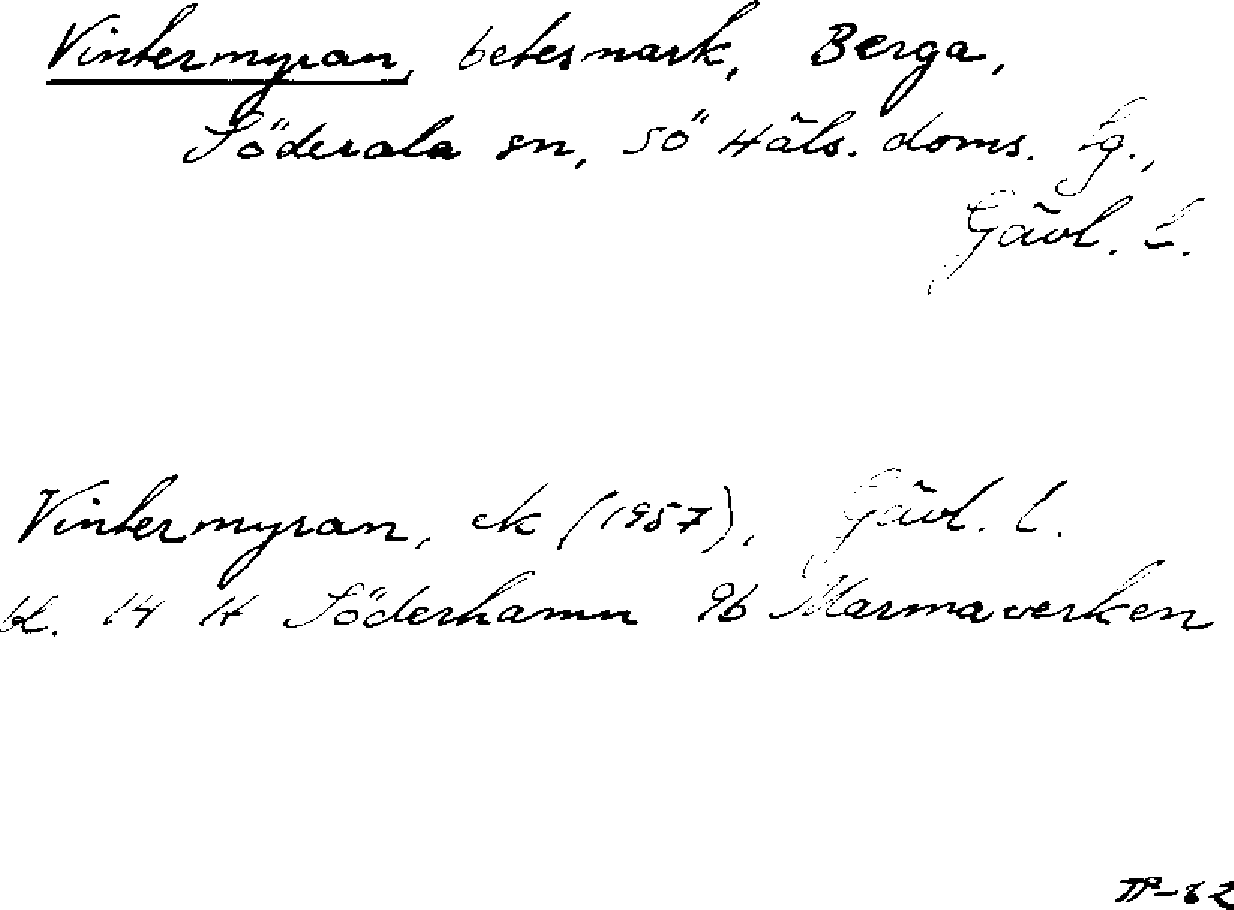 Vintermyran, betesmark, Berga,
Söderala sn, Sö Häls. doms. tg.,
Gävl. l.
Vintermyran, ek (1957), Gävl. l.
bl. 14 H Söderhamn 9b Marmaverken
TP-82